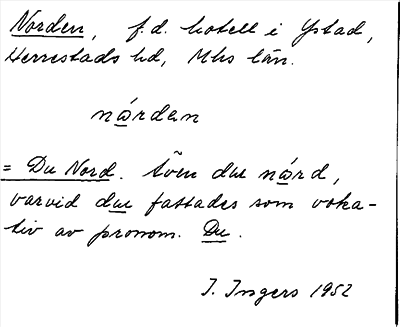 Norden, f.d. hotell i Ystad,
Herrestads hd, Mhs län.
nårdan
= Du Nord. även du nård,
varvid du fattades som voka-
tiv av pronom. Du.
I. Ingers 1952